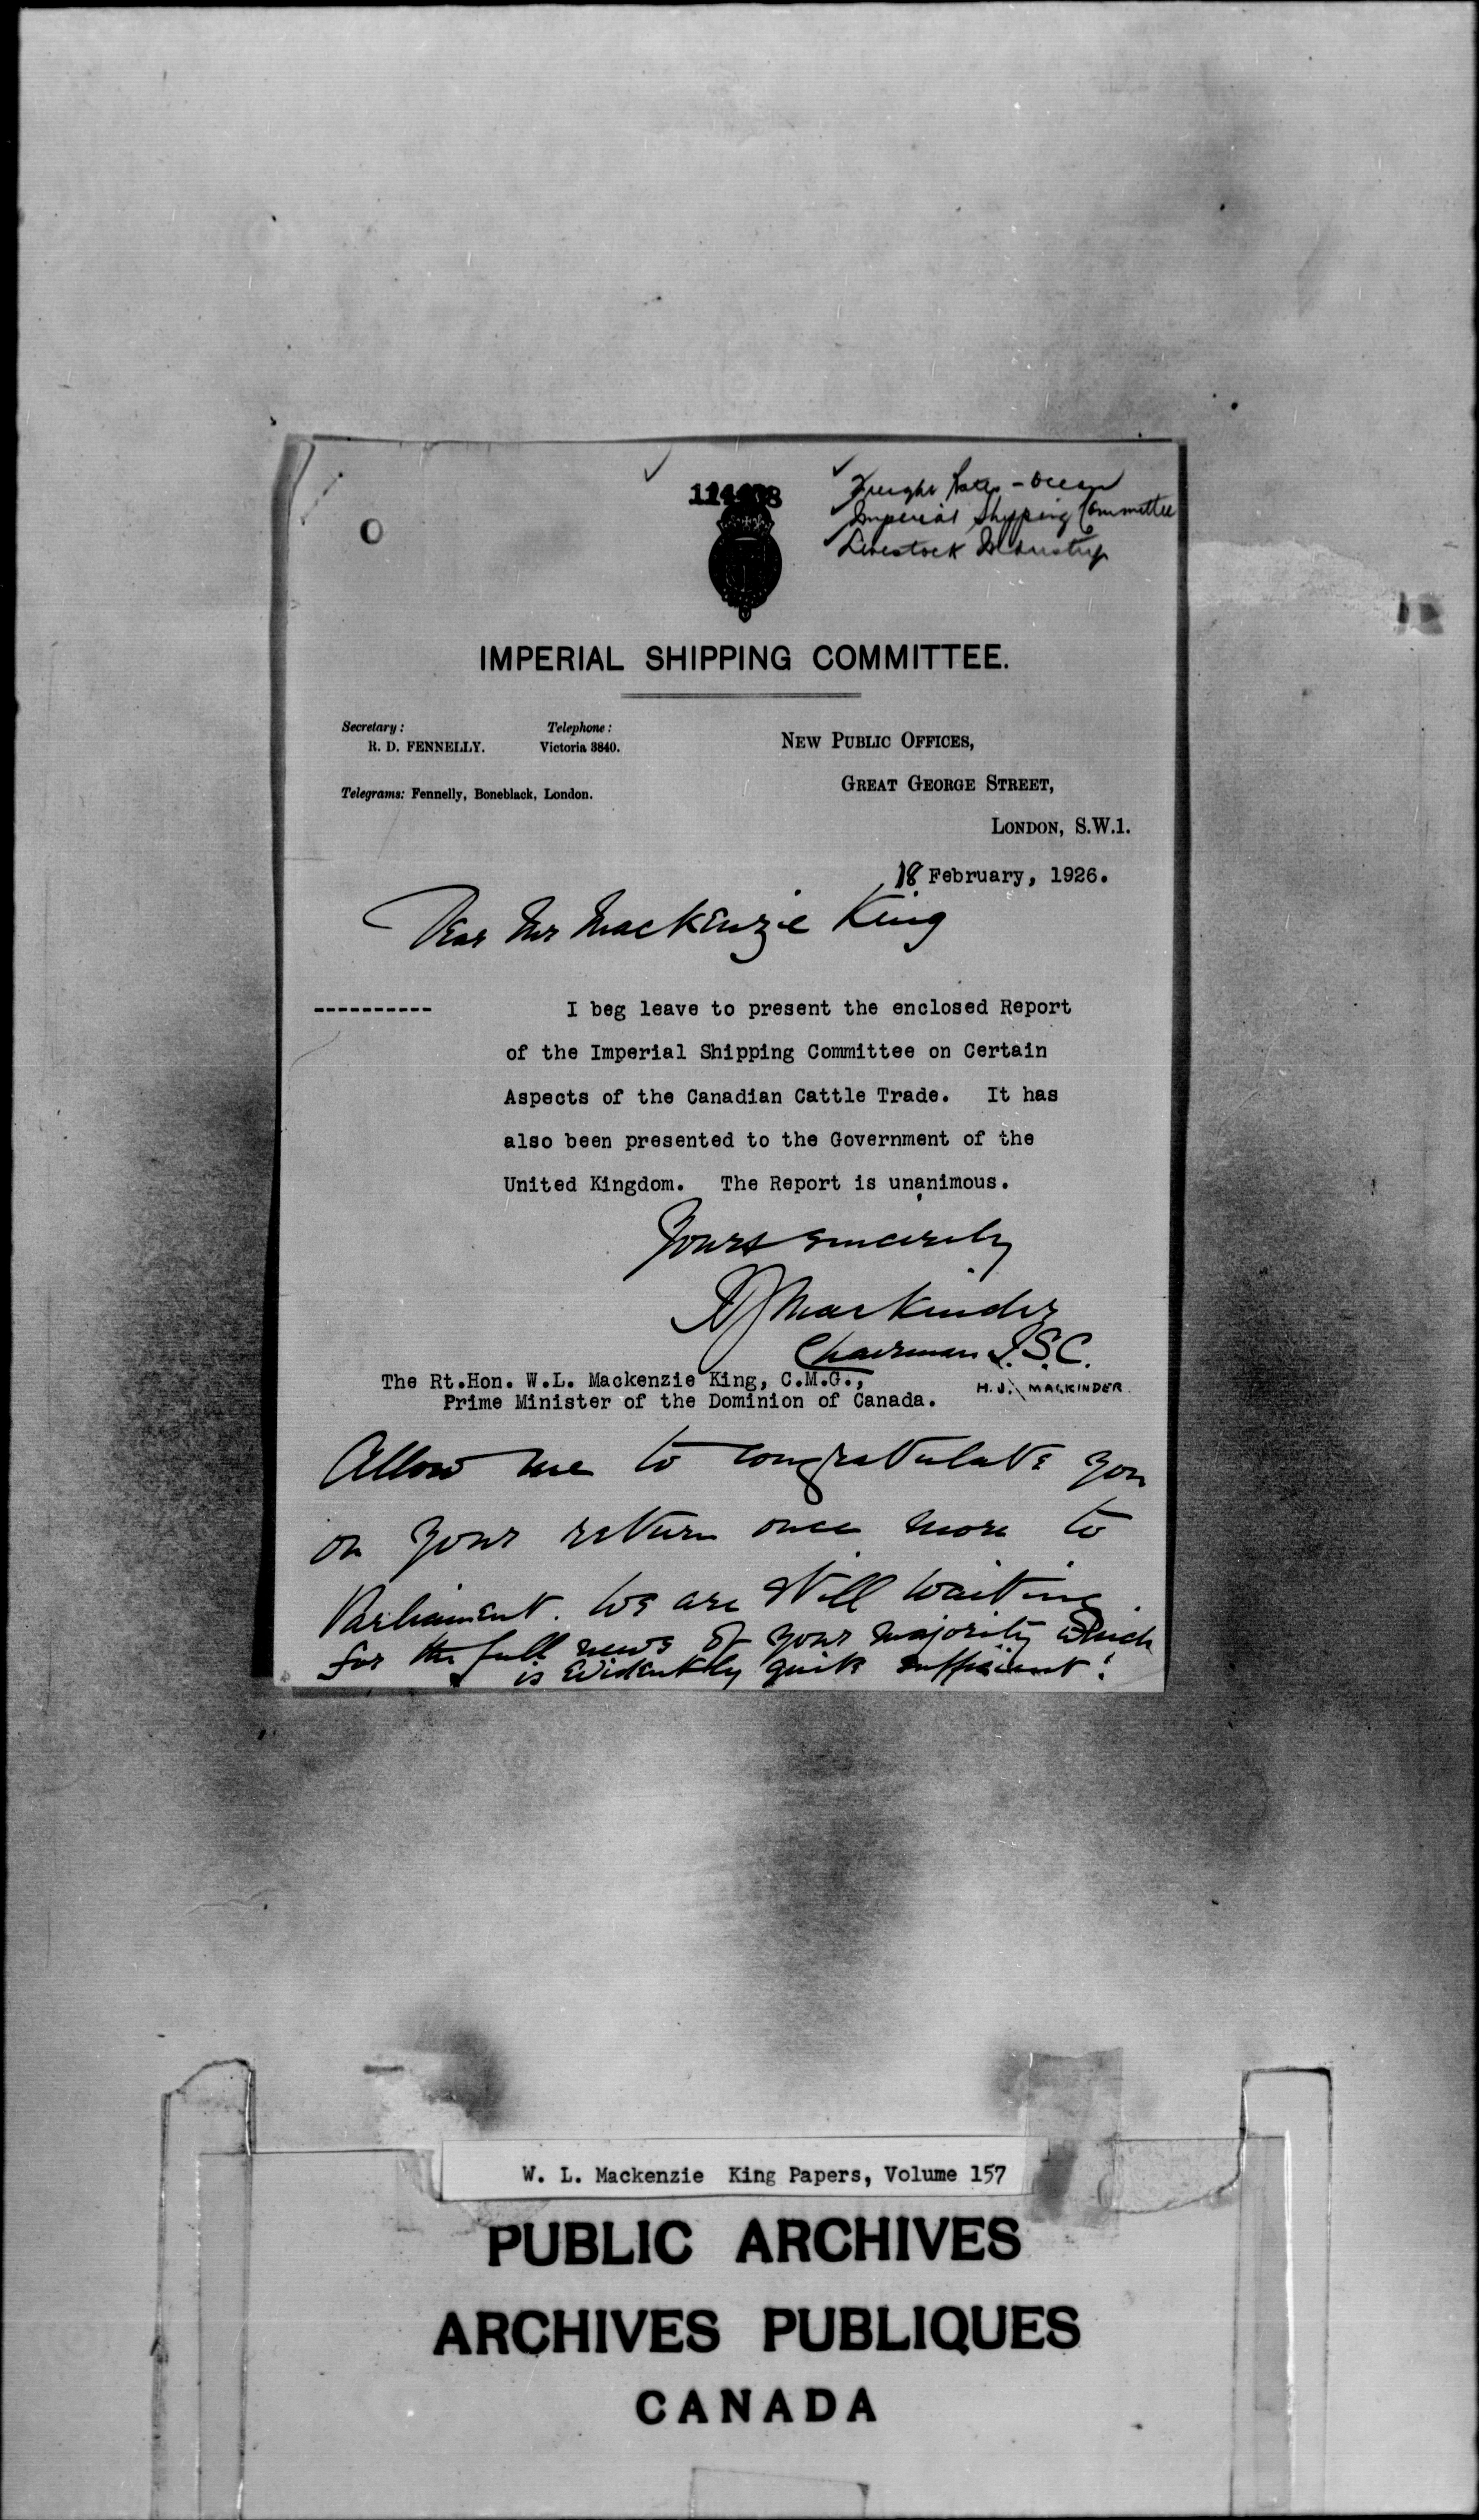 Freight Rates - Ocean
Imperial Shipping Committee
Livestock Industry
IMPERIAL SHIPPING COMMITTEE.
Secretary:
R. D. FENNELLY.
Telephone:
Victoria 3840.
Telegrams: Fennelly, Boneblack, London.
NEW PUBLIC OFFICES,
GREAT GEORGE STREET,
LONDON, S.W.1.
18 February, 1926.
Dear Mr Mackenzie King
----------
I beg leave to present the enclosed Report
of the Imperial Shipping Committee on Certain
Aspects of the Canadian Cattle Trade. It has
also been presented to the Government of the
United Kingdom. The Report is unanimous.
Yours sincerely
HJMackinder
Chairman I.S.C.
H.J. MACKINDER.
The Rt.Hon. W.L. Mackenzie King, C.M.G.,
Prime Minister of the Dominion of Canada.
Allow me to congratulate you
on your return once more to
Parliament. We are still waiting
for the full news of your majority which
is evidently quite sufficient!
W. L. Mackenzie King Papers, Volume 157
PUBLIC ARCHIVES
ARCHIVES PUBLIQUES
CANADA